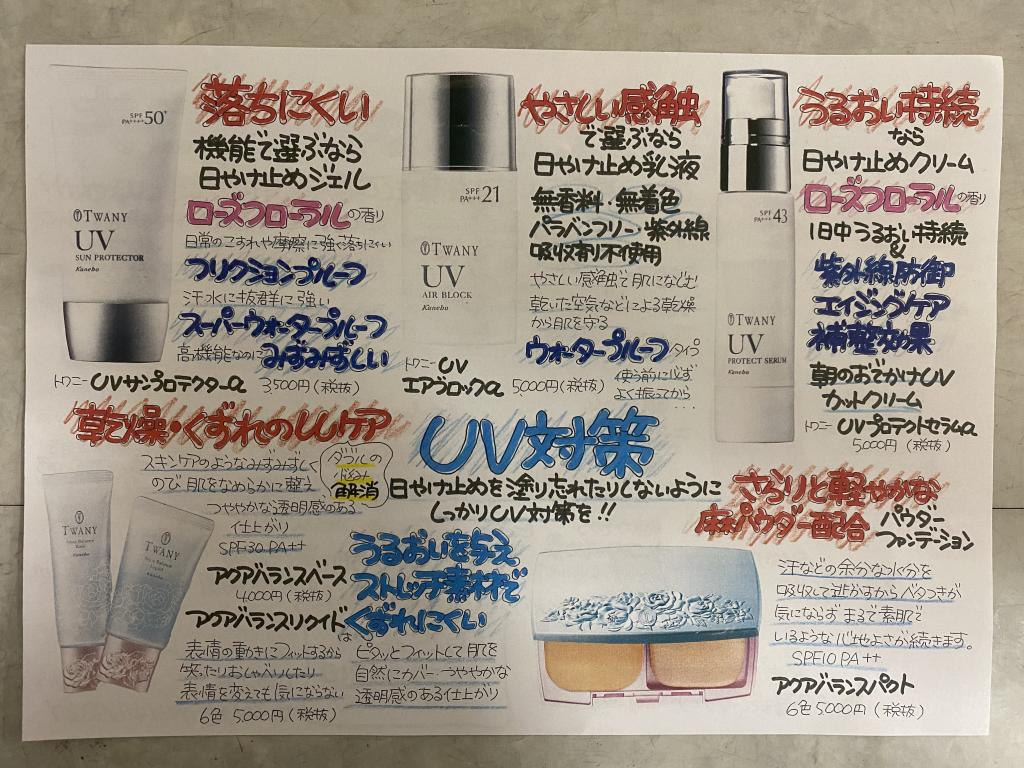 SPF 50+
PA++++
TWANY
UV
SUN PROTECTOR
Kanebo
落ちにくい
機能で選ぶなら
日やけ止めジェル
ローズフローラルの香り
日常のこすれや摩擦に強く落ちにくい
フリクションプルーフ
汗水に抜群に強い
スーパーウォータープルーフ
高機能なのにみずみずしい
トワニー UVサンプロテクターα 3,500円(税抜)
SPF 21
PA+++
TWANY
UV
AIR BLOCK
Kanebo
やさしい感触
で選ぶなら
日やけ止め乳液
無香料・無着色
パラベンフリー・紫外線
吸収剤不使用
やさしい感触で肌になじむ
乾いた空気などによる乾燥
から肌を守る
ウォータープルーフタイプ
使う前に必ず
よく振ってから
・・・
トワニー UV
エアブロックα 5,000円(税抜)
SPF 43
PA+++
TWANY
UV
PROTECT SERUM
Kanebo
うるおい持続
なら
日やけ止めクリーム
ローズフローラルの香り
1日中うるおい持続
&
紫外線防御
エイジングケア
補整効果
朝のおでかけUV
カットクリーム
トワニー UVプロテクトセラムα
5,000円(税抜)
UV対策
日やけ止めを塗り忘れたりしないように
しっかりUV対策を!!
乾燥・くずれのWケア
スキンケアのようなみずみずしく
ので肌をなめらかに整え
つややかな透明感のある
仕上がり
SPF30 PA++
ダブルの
悩み
解消
アクアバランスベース
4,000円(税抜)
TWANY
Aqua Balance
Base
Kanebo
TWANY
Aqua Balance
Liquid
Kanebo
うるおいを与え
ストレッチ素材で
くずれにくい
アクアバランスリクイドは
表情の動きにフィットするから
笑ったりおしゃべりしたり
表情を変えても気にならない
6色 5,000円(税抜)
ピタッとフィットして肌を
自然にカバー・つややかな
透明感のある仕上がり
さらりと軽やかな
麻パウダー配合 パウダー
ファンデーション
汗などの余分な水分を
吸収して逃がすからベタつきが
気にならず まるで素肌で
いるような心地よさが続きます。
SPF10 PA++
アクアバランスパクト
6色 5,000円(税抜)